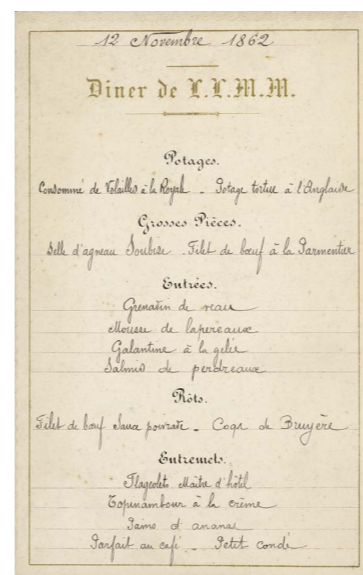 12 Novembre 1862
Diner de L.L.M.M.
Potages.
Consommé de Volailles à la Royale - Potage tortue à l'Anglaise
Grosses Pièces.
Selle d'agneau Soubise - Filet de bœuf à la Parmentier
Entrées.
Grenatin de veau
Mousse de lapereaux
Galantine à la gelée
Salmis de perdreaux
Rôts.
Filet de bœuf Sauce poivrade - Coqs de Bruyère
Entremets.
Flageolets Maître d'hôtel
Topinambour à la crème
d'ananas
Parfait au café - Petit condé